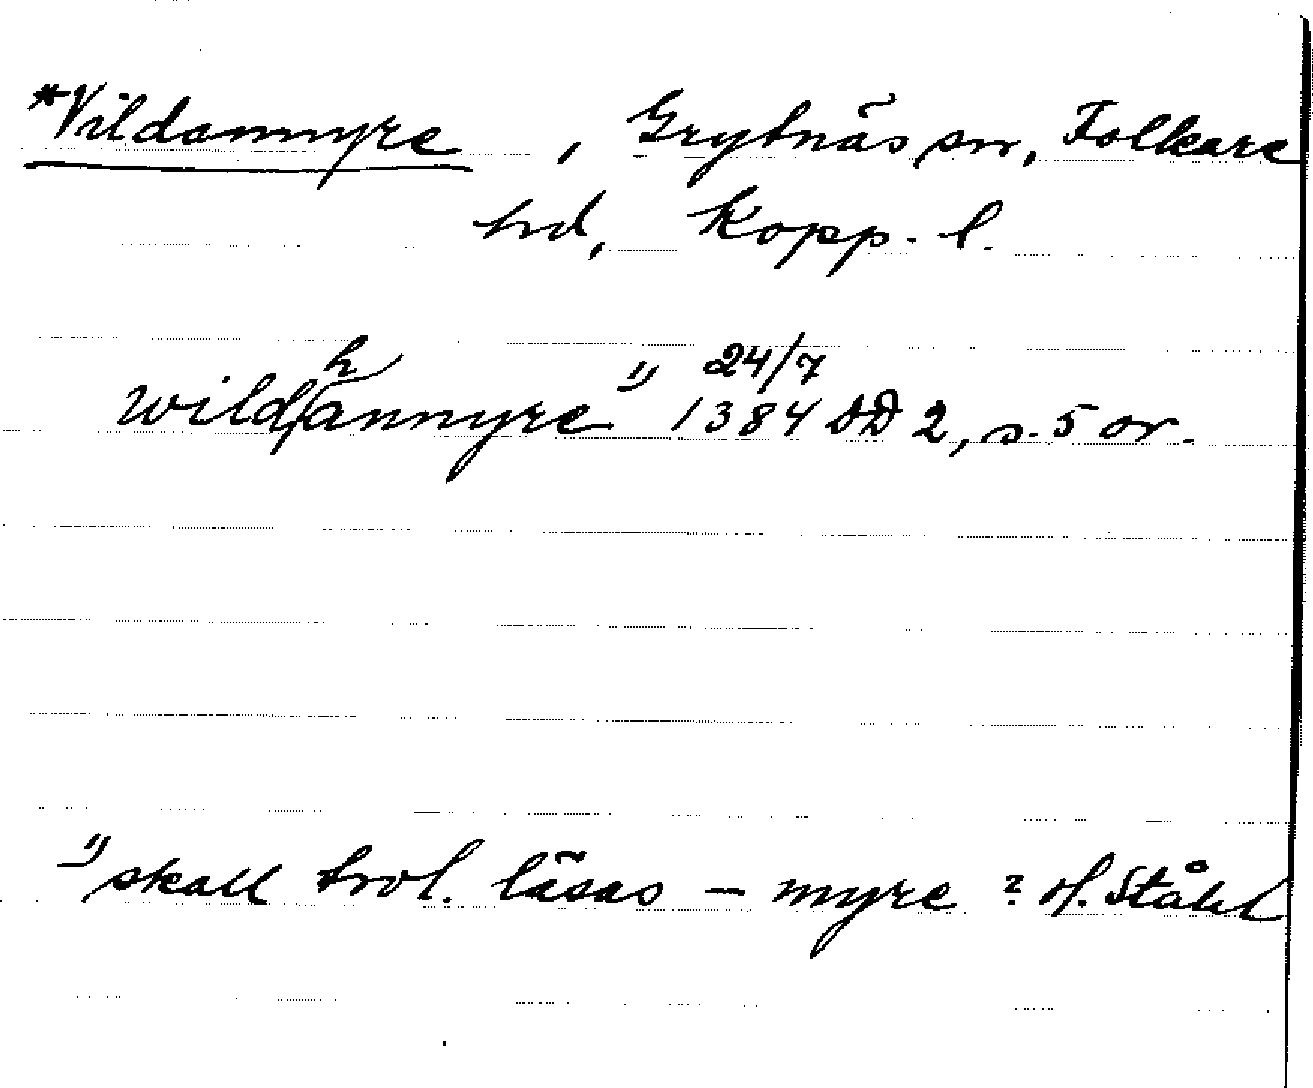 *Vildamyre, Grytnäs sn, Folkare
hd, Kopp. l.
wildhannyre 1) 24/7 1384 DD 2, s. 5 or.
1) skall trol. läsas - myre? H. Ståhl